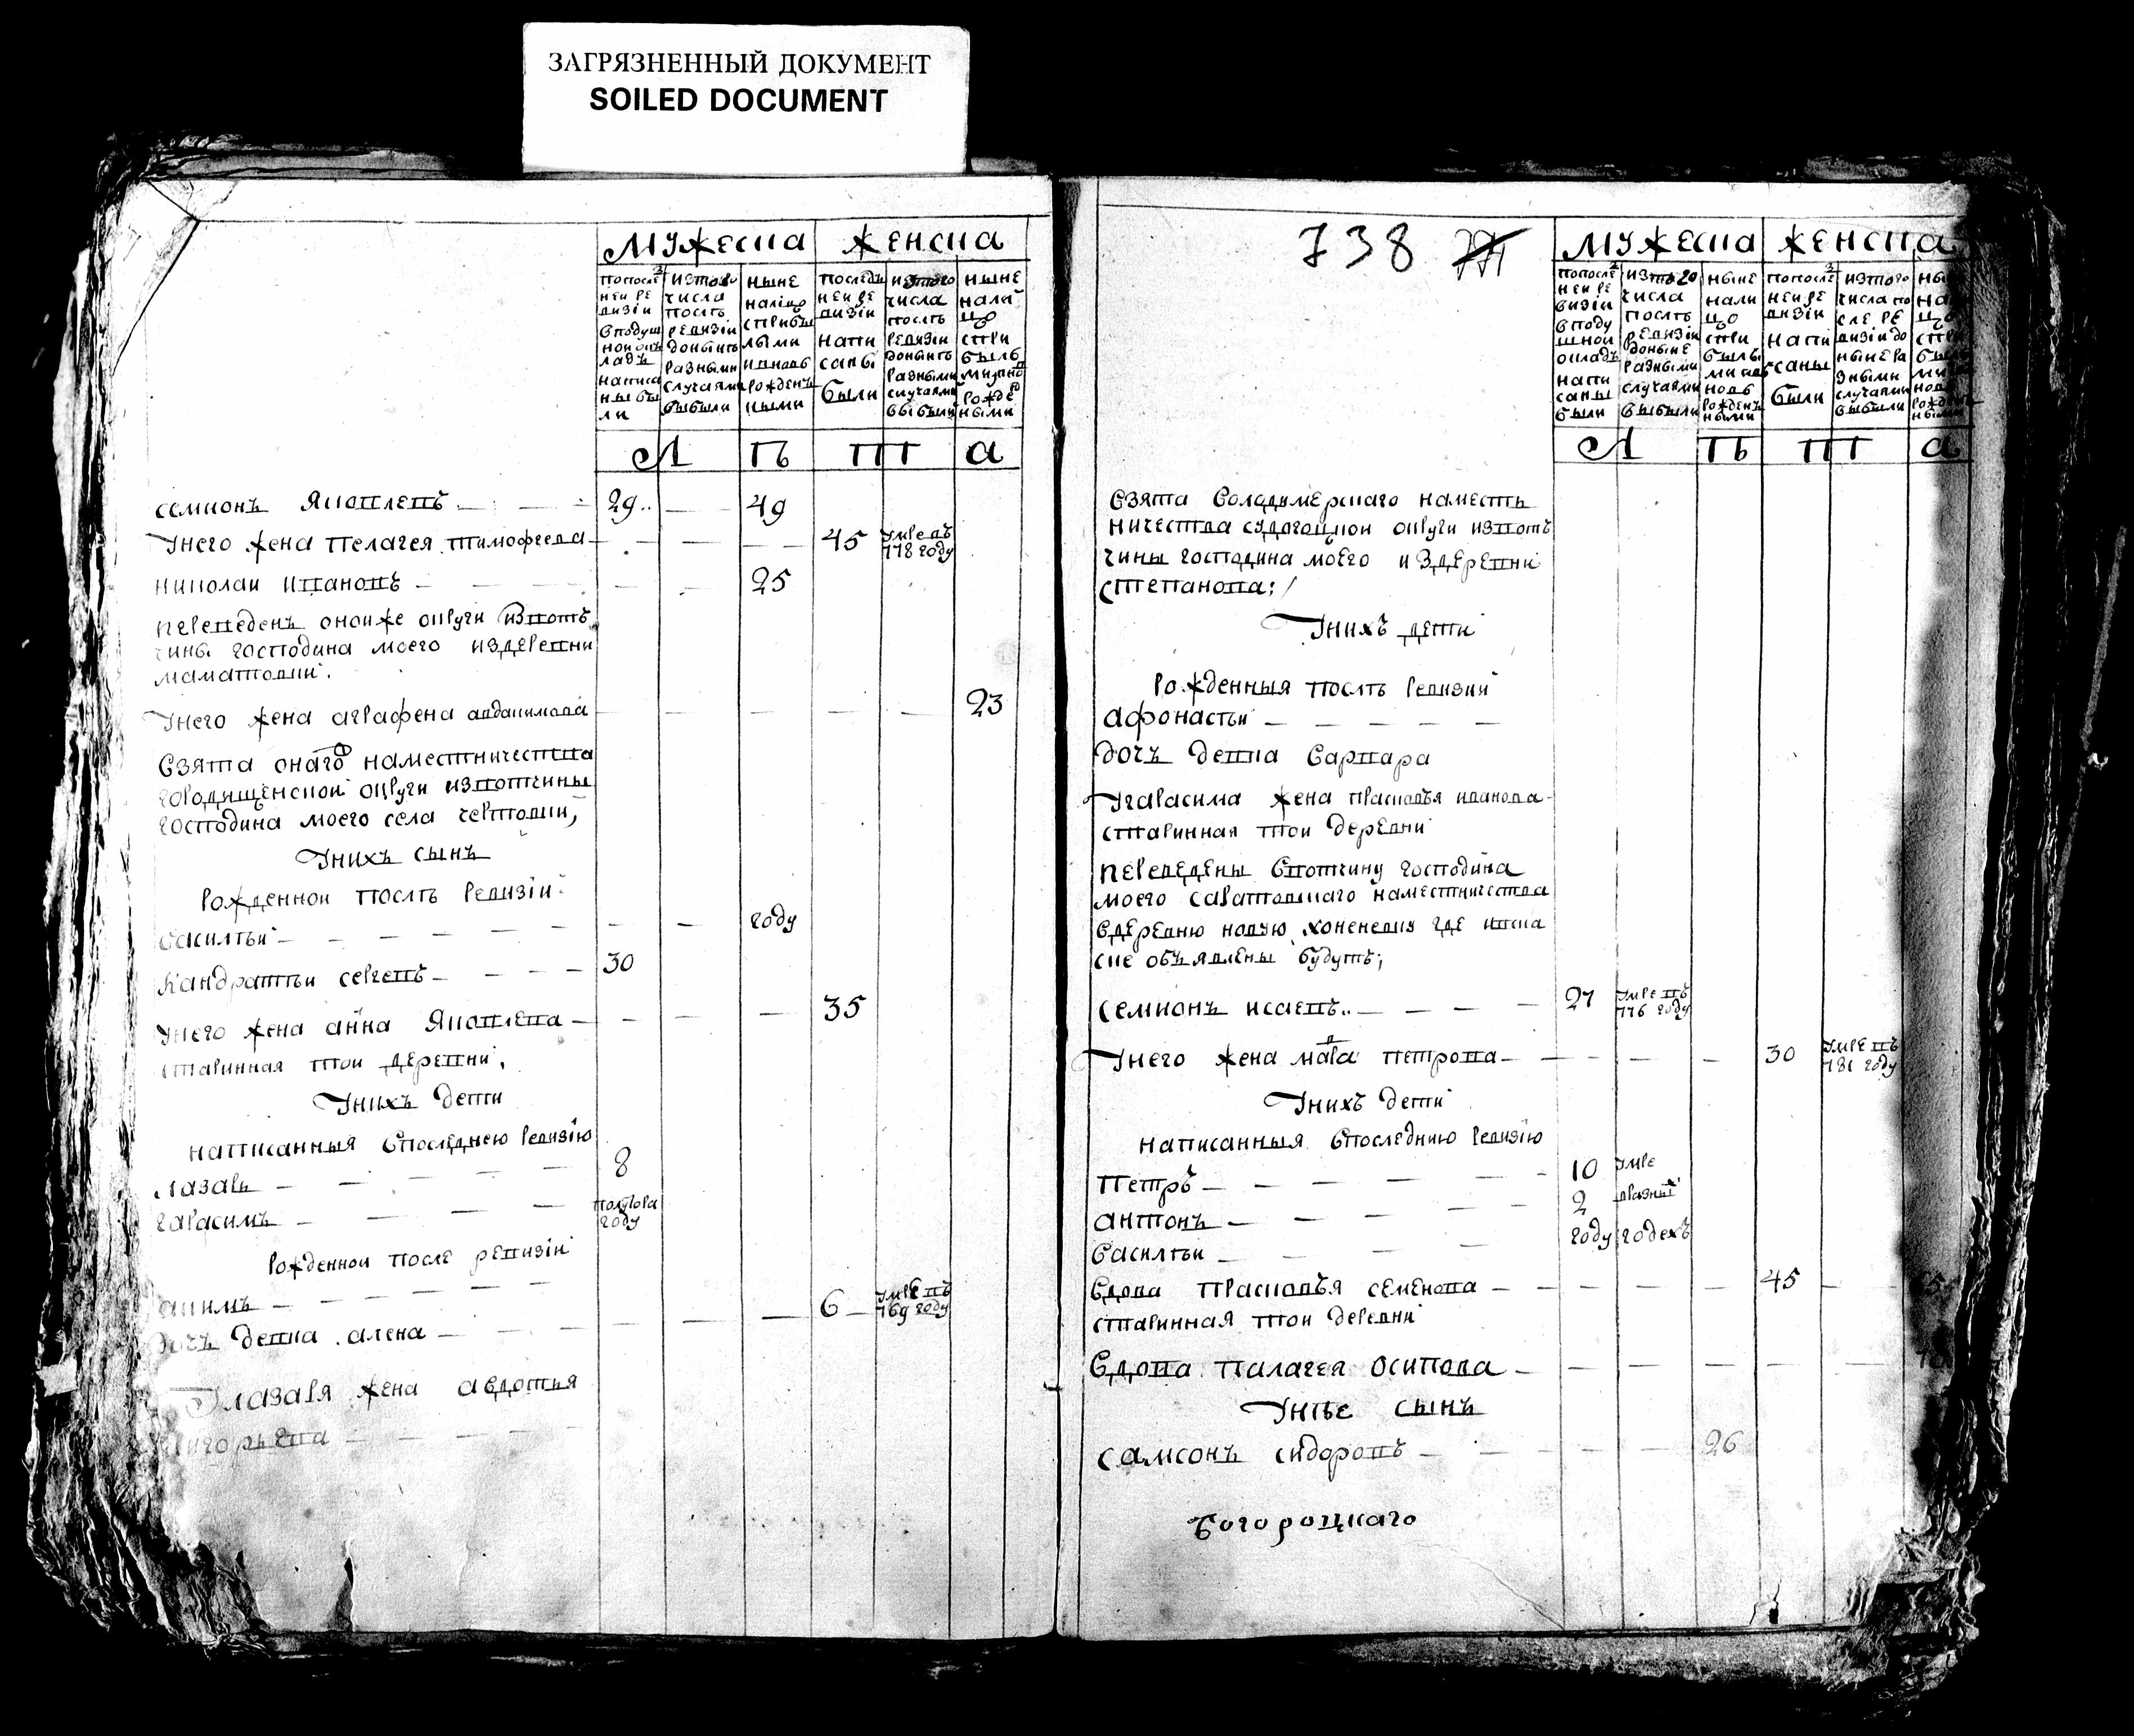 ЗАГРЯЗНЕННЫЙ ДОКУМЕНТ
SOILED DOCUMENT
мужеска женска
попосле
ней ре
визiи
вподуш
ной окъ
ладъ
написа
ны бы
ли
изтого
числа
послѣ
ревизiи
донынѣ
разными
случаями
выбыли
ныне
налицо
сприбы
лыми
ивновь
рожденъ
ными
последъ
ней ре
визiи
напи
саны
были
изтого
числа
послѣ
ревизiи
донынѣ
разными
случаями
выбыли
ныне
нали
цо
спри
былы
ми
рожде
ными
Л Ѣ Т А
семионъ яковлевъ 29 49
унего жена пелагея тимофеева 45 умре въ 778 году
николаи ивановъ 25
переведенъ оноиже округи извотъ
чины господина моего издеревни
маматовки
унего жена аграфена авдакимова 23
взята онаго наместничества
городищенской округи извотчины
господина моего села чертовки,
унихъ сынъ
рожденнои послѣ ревизiи
василѣи году
кандратѣи сергевъ 30
унего жена анна яковлева 35
старинная тои деревни,
унихъ дети
написанныя впоследнею ревизiю
лазарь 8
гарасимъ полутора году
рожденнои после ревизiи
акимъ
дочъ девка алена 6 умре въ 769 году
улазаря жена авдотья
григорьева
738
мужеска женска
попосле
ней ре
визiи
вподу
шнои
окладъ
напи
саны
были
изтого
числа
послѣ
ревизiи
доныне
разными
случаями
выбыли
ныне
нали
цо
спри
былы
ми ив
новь
рожденъ
ными
попосле
ней ре
визiи
напи
саны
были
изтого
числа по
сле ре
визiи до
ныне ра
зными
случаями
выбыли
Л Ѣ Т А
взята володимерскаго наместъ
ничества судогоцкои округи извотъ
чины господина моего издеревни
степанова:/
унихъ дети
рожденныя послѣ ревизии
афонасѣи
дочъ девка варвара
угарасима жена прасковѣя иванова
старинная тои деревни
переведены вотчину господина
моего саратовскаго наместничества
вдеревню новую хоненевку где ивска
ске объявлены будутъ;
семионъ исаевъ 27 умре въ 776 году
унего жена мара петрова 30 умре въ 781 году
унихъ дети
написанныя впоследнию ревизiю
петръ 10 умре
антонъ 2 вразны
василѣи году годехъ
вдова прасковѣя семенова 45
старинная тои деревни
вдова палагея осипова
унѣе сынъ
самсонъ сидоровъ 26
богороцкаго